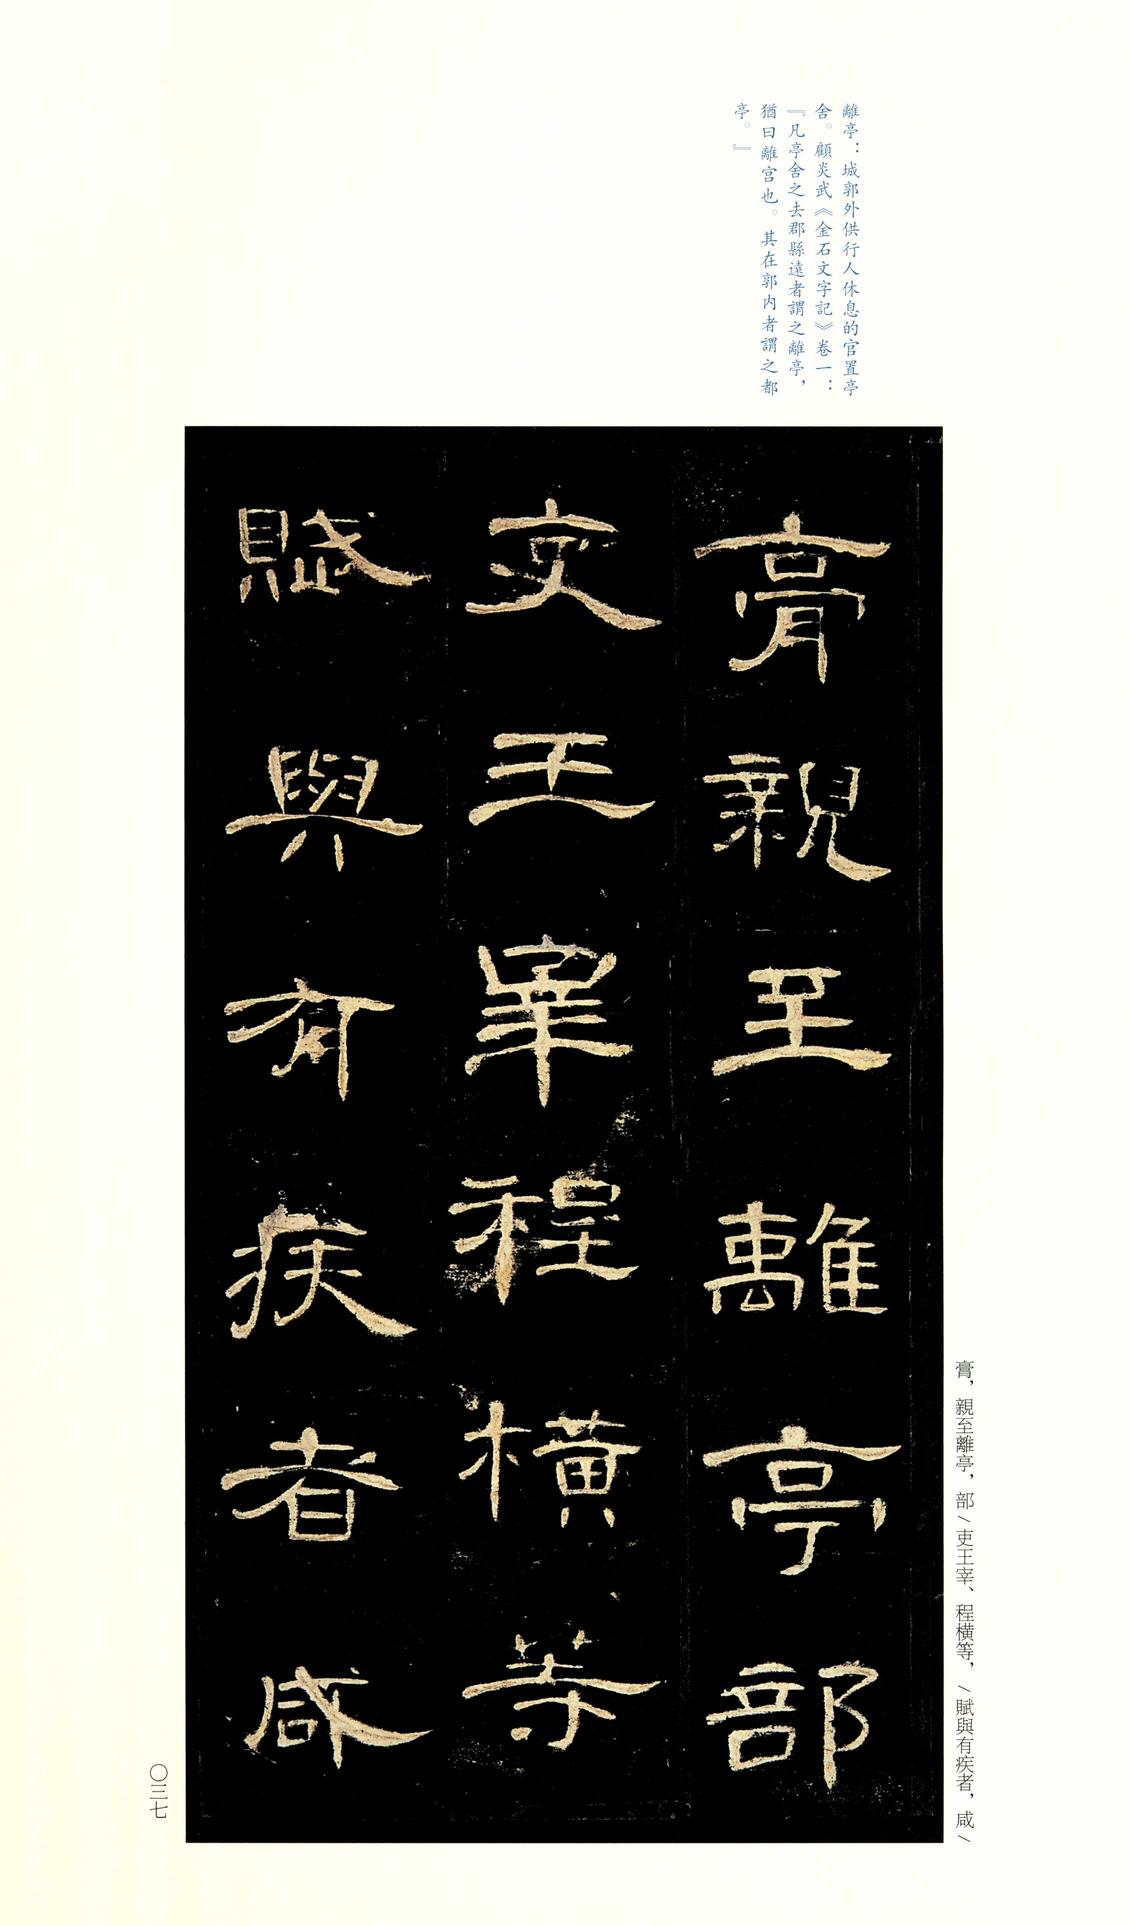 離亭：城郭外供行人休息的官置亭
舍。顧炎武《金石文字記》卷一：
『凡亭舍之去郡縣遠者謂之離亭，
猶曰離宫也。其在郭内者謂之都
亭。』
膏親至離亭部
吏王宰程橫等
賦與有疾者咸
膏，親至離亭，部\吏王宰、程橫等，\賦與有疾者，咸\
〇三七